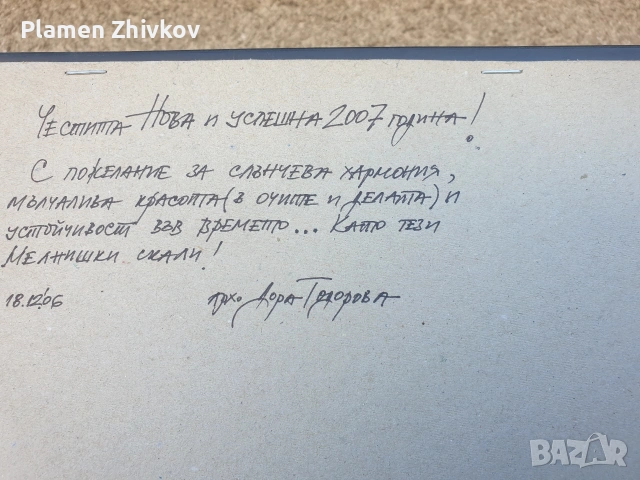 Plamen Zhivkov
Честита Нова и успешна 2007 година!
С пожелание за слънчева хармония,
мълчалива красота (в очите и делата) и
устойчивост във времето... Като тези
Мелнишки скали!
18.12.06 Дора Тодорова
BAZAR